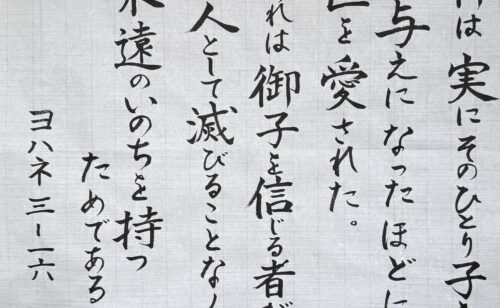 は実にそのひとり子を
与えになったほどに
を愛された。
れは御子を信じる者が
人として滅びることなく
永遠のいのちを持つ
ためである
ヨハネ三ー一六